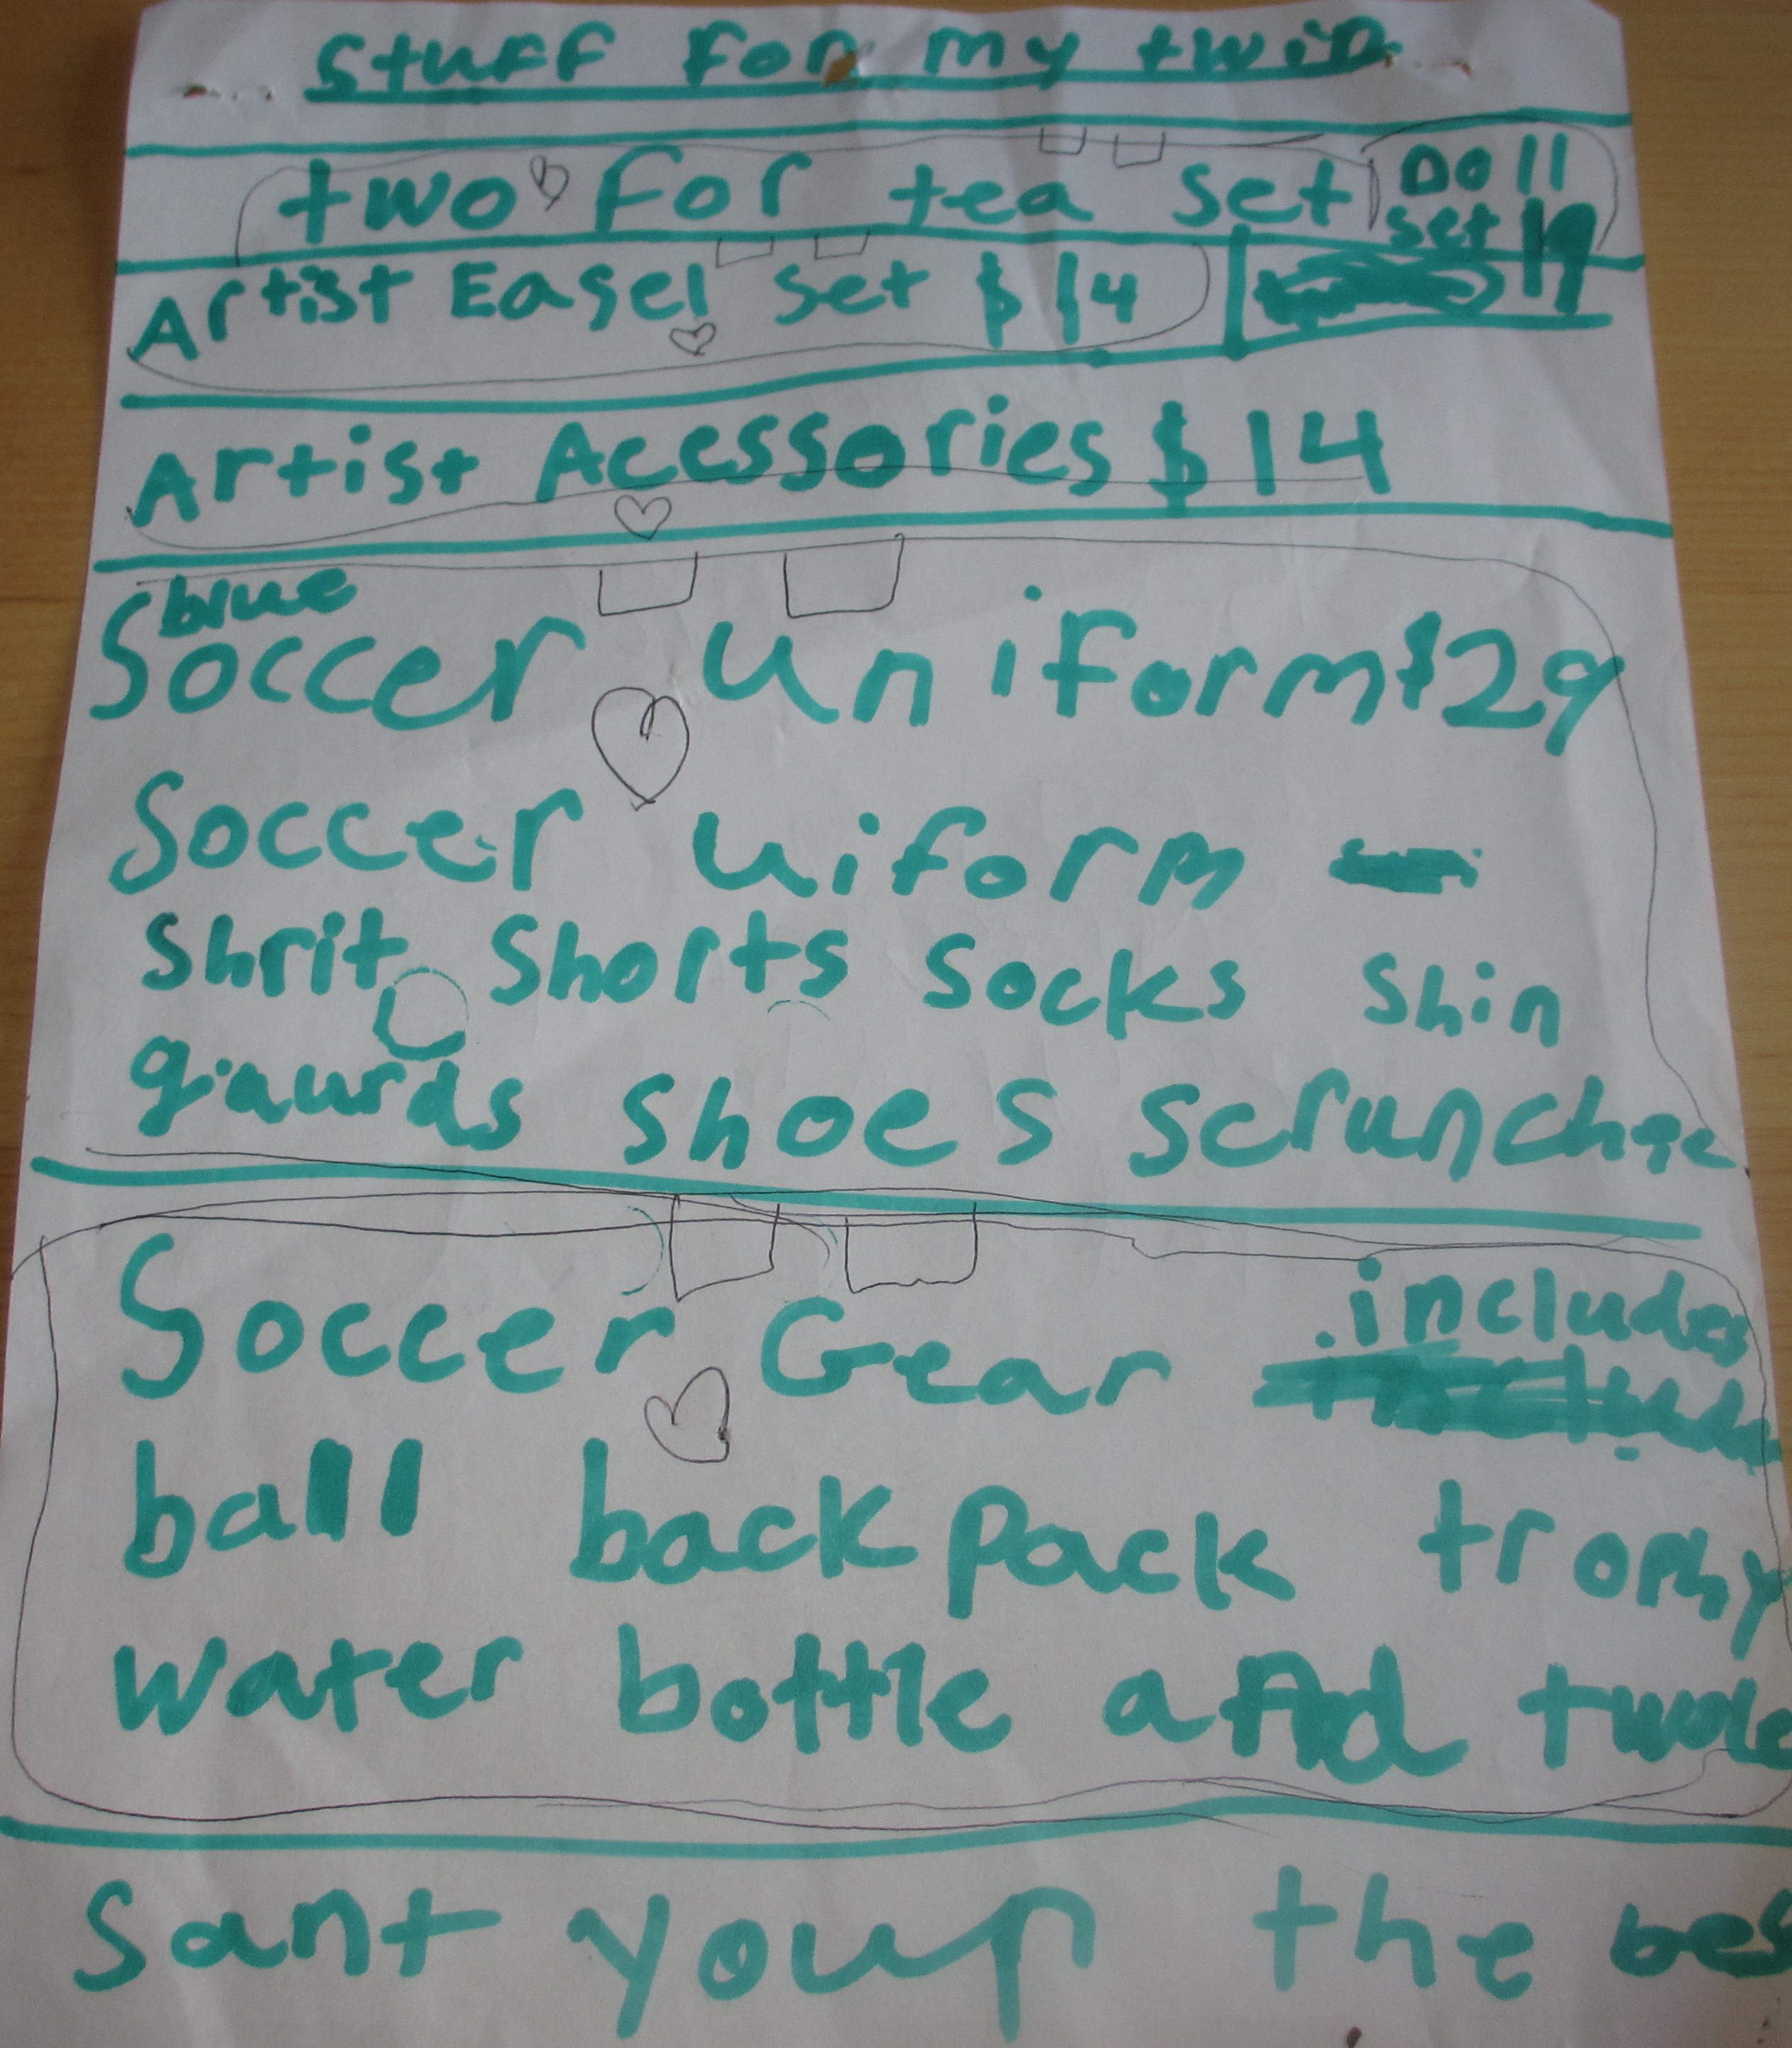 Stuff for my twin
two for tea set Doll
set 19
Artist Easel set $14
Artist Acessories $14
blue
Soccer Uniform $29
Soccer uiform -
Shrit, Shorts socks shin
gaurds shoes scrunchie
Soccer Gear includes
ball back pack trophy
water bottle and twole
Sant your the bes